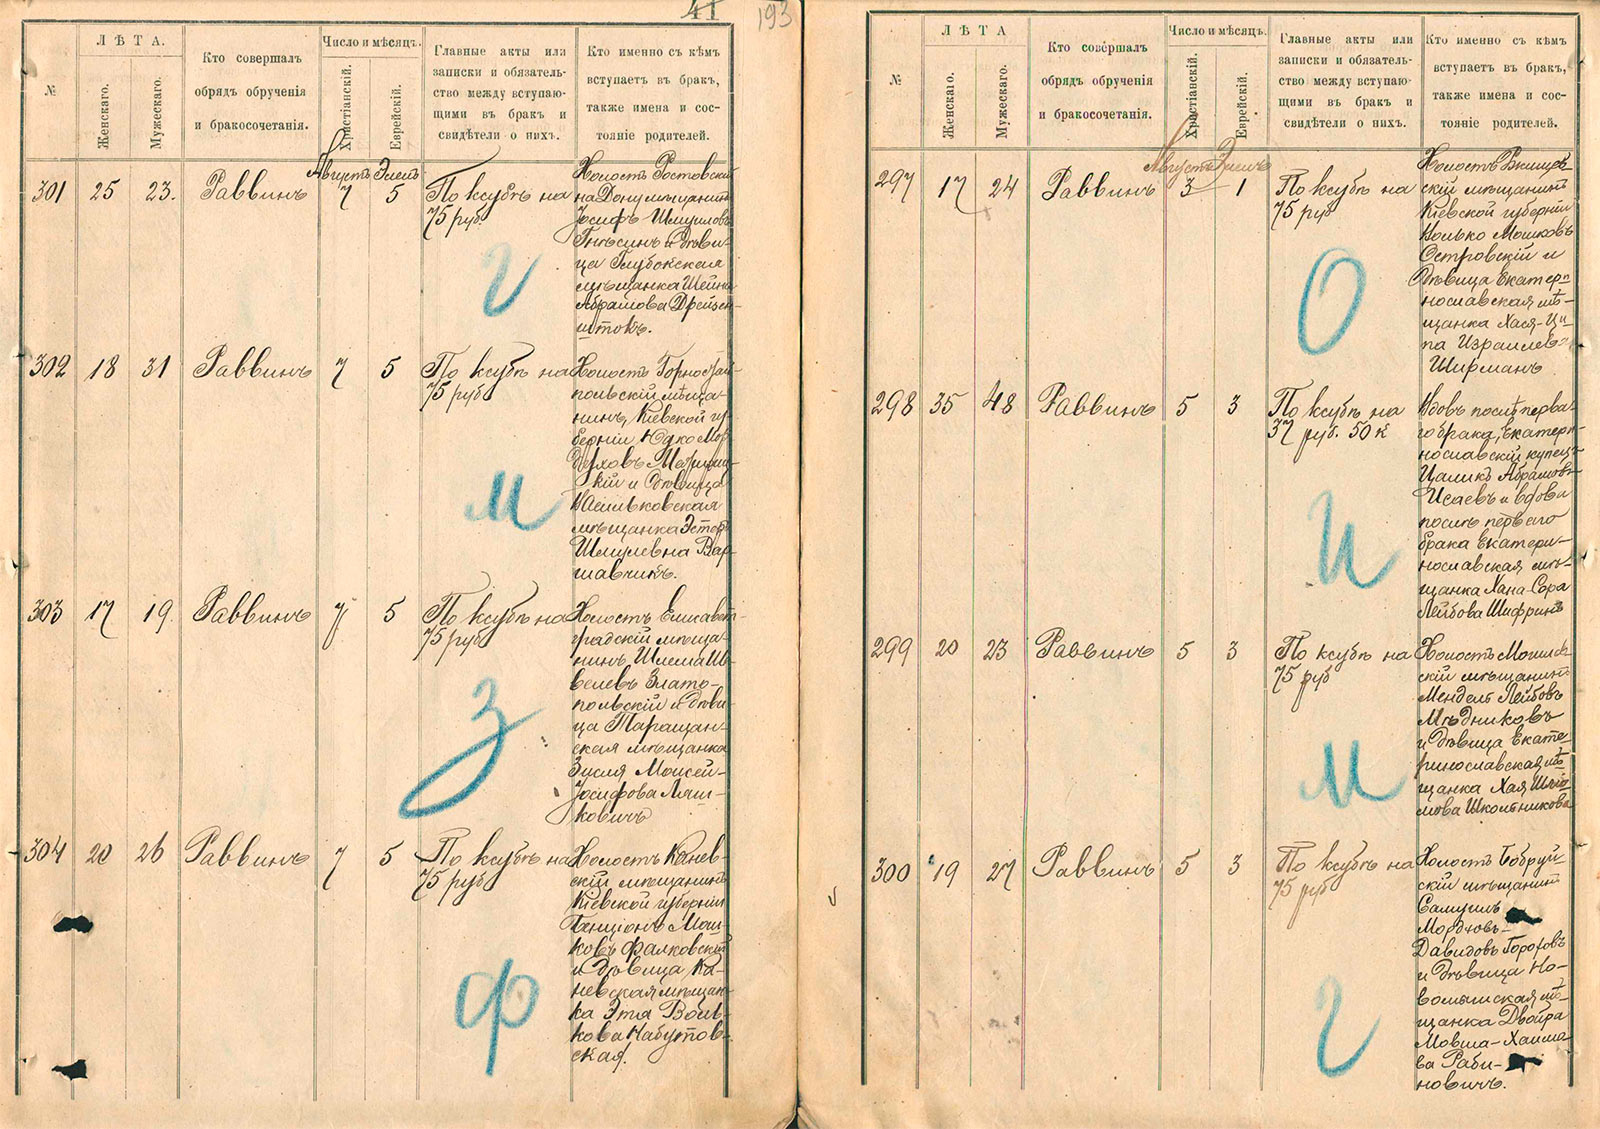 41
193
№
ЛѢТА.
Женскаго.
Мужескаго.
Кто совершалъ
обрядъ обрученія
и бракосочетанія.
Число и мѣсяцъ.
Христіанскій.
Еврейскій.
Главные акты или
записки и обязатель-
ство между вступаю-
щими въ бракъ и
свидѣтели о нихъ.
Кто именно съ кѣмъ
вступаетъ въ бракъ,
также имена и сос-
тояніе родителей.
Августъ Элелъ
301 25 23. Раввинъ 7 5
По ксубѣ на
75 руб.
Холостъ Ростовскій
на Дону мѣщанинъ
Іосифъ Шмуиловъ
Гнѣсинъ и дѣви-
ца Глубокская
мѣщанка Шейна
Абрамова Дрейзен-
штокъ.
г
302 18 31 Раввинъ 7 5
По ксубѣ на
75 руб
Холостъ Горностай-
польскій мѣща-
нинъ, Кіевской гу-
берніи Юдко Мор-
духовъ
скій и дѣвица
Васильковская
мѣщанка Эстеръ
Шмулевна Вар-
шавчикъ.
м
303 17 19. Раввинъ 7 5
По ксубѣ на
75 руб
Холостъ Елисавет-
градскій мѣща-
нинъ Шлема Ш-
велевъ Злато-
польскій и дѣви-
ца Таращан-
ская мѣщанка
Зисля Моисей-
Іосифова Ляш-
ковичъ
З
304 20 26 Раввинъ 7 5
По ксубѣ на
75 руб
Холостъ Канев-
скій мѣщанинъ
Кіевской губерніи
Бенціонъ Мош-
ковъ Фалковскій
и дѣвица Ка-
невская мѣщан-
ка Этя Воль-
кова Набутов-
ская.
ф
№
ЛѢТА
Женскаго.
Мужескаго.
Кто совершалъ
обрядъ обрученія
и бракосочетанія.
Число и мѣсяцъ.
Христіанскій.
Еврейскій.
Главные акты или
записки и обязатель-
ство между вступаю-
щими въ бракъ и
свидѣтели о нихъ.
Кто именно съ кѣмъ
вступаетъ въ бракъ,
также имена и сос-
тояніе родителей.
Августъ Элелъ
297 17 24 Раввинъ 3 1
По ксубѣ на
75 руб
Холостъ
скій мѣщанинъ
Кіевской губерніи
Волько Мошковъ
Островскій и
дѣвица Екатери-
нославская мѣ-
щанка Хася-Ци-
па Израилева
Ширманъ
О
298 35 48 Раввинъ 5 3
По ксубѣ на
37 руб. 50 к
Вдовъ послѣ перва-
го брака, Екатери-
нославскій купецъ
Цаликъ Абрамовъ
Исаевъ и вдова
послѣ перваго
брака Екатери-
нославская мѣ-
щанка Хана-Сора
Лейбова Шифринъ
И
299 20 23 Раввинъ 5 3
По ксубѣ на
75 руб
Холостъ Могилев-
скій мѣщанинъ
Мендель Лейбовъ
Мѣдниковъ
и дѣвица Екате-
ринославская мѣ-
щанка Хая Шлио-
мова Школьникова
м
300 19 27 Раввинъ 5 3
По ксубѣ на
75 руб
Холостъ Бобруй-
скій мѣщанинъ
Самуилъ
Мордковъ-
Давидовъ Гороховъ
и дѣвица Но-
вомлыская мѣ-
щанка Двойра
Мовша-Хаимо-
ва Раби-
новичъ.
г